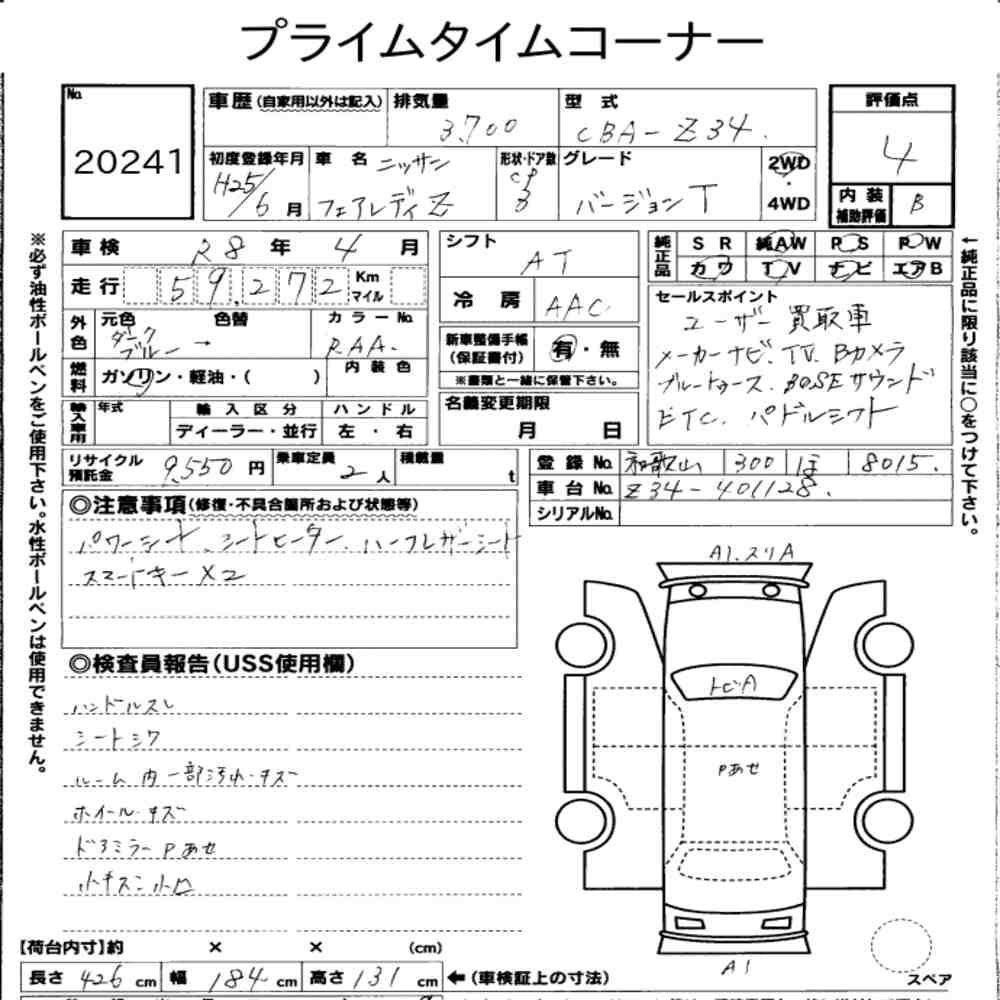 プライムタイムコーナー
No. 20241
車歴(自家用以外は記入)
排気量 3,700
型式 CBA-Z34.
評価点 4
初度登録年月 H25/6月
車名 ニッサン フェアレディZ
形状・ドア数 CP 3
グレード バージョンT
2WD・4WD
内装補助評価 B
※必ず油性ボールペンをご使用下さい。水性ボールペンは使用できません。
車検 R8年 4月
シフト AT
純正品 SR 純AW PS PW
カワ TV ナビ エアB
走行 59,272 Km マイル
冷房 AAC
←純正品に限り該当に○をつけて下さい。
外色 元色 ダークブルー → 色替
カラーNo. RAA.
新車整備手帳(保証書付) 有・無
※書類と一緒に保管下さい。
セールスポイント
ユーザー買取車
メーカーナビ.TV.Bカメラ
ブルートゥース.BOSEサウンド
ETC.パドルシフト
燃料 ガソリン・軽油・( )
内装色
名義変更期限 月 日
輸入車用 年式 輸入区分 ディーラー・並行
ハンドル 左・右
リサイクル預託金 9,550円
乗車定員 2人
積載量 t
登録No. 和歌山 300 ほ 8015.
車台No. Z34-401128.
シリアルNo.
◎注意事項(修復・不具合箇所および状態等)
パワーシート、シートヒーター、ハーフレザーシート
スマートキー×2
◎検査員報告(USS使用欄)
ハンドルスレ
シートシワ
ルーム内一部汚れ・キズ
ホイールキズ
ドアミラーPあせ
小キズ小凹
A1.スリA
トビA
Pあせ
A1
スペア
【荷台内寸】約 × × (cm)
長さ 426 cm 幅 184 cm 高さ 131 cm ←(車検証上の寸法)